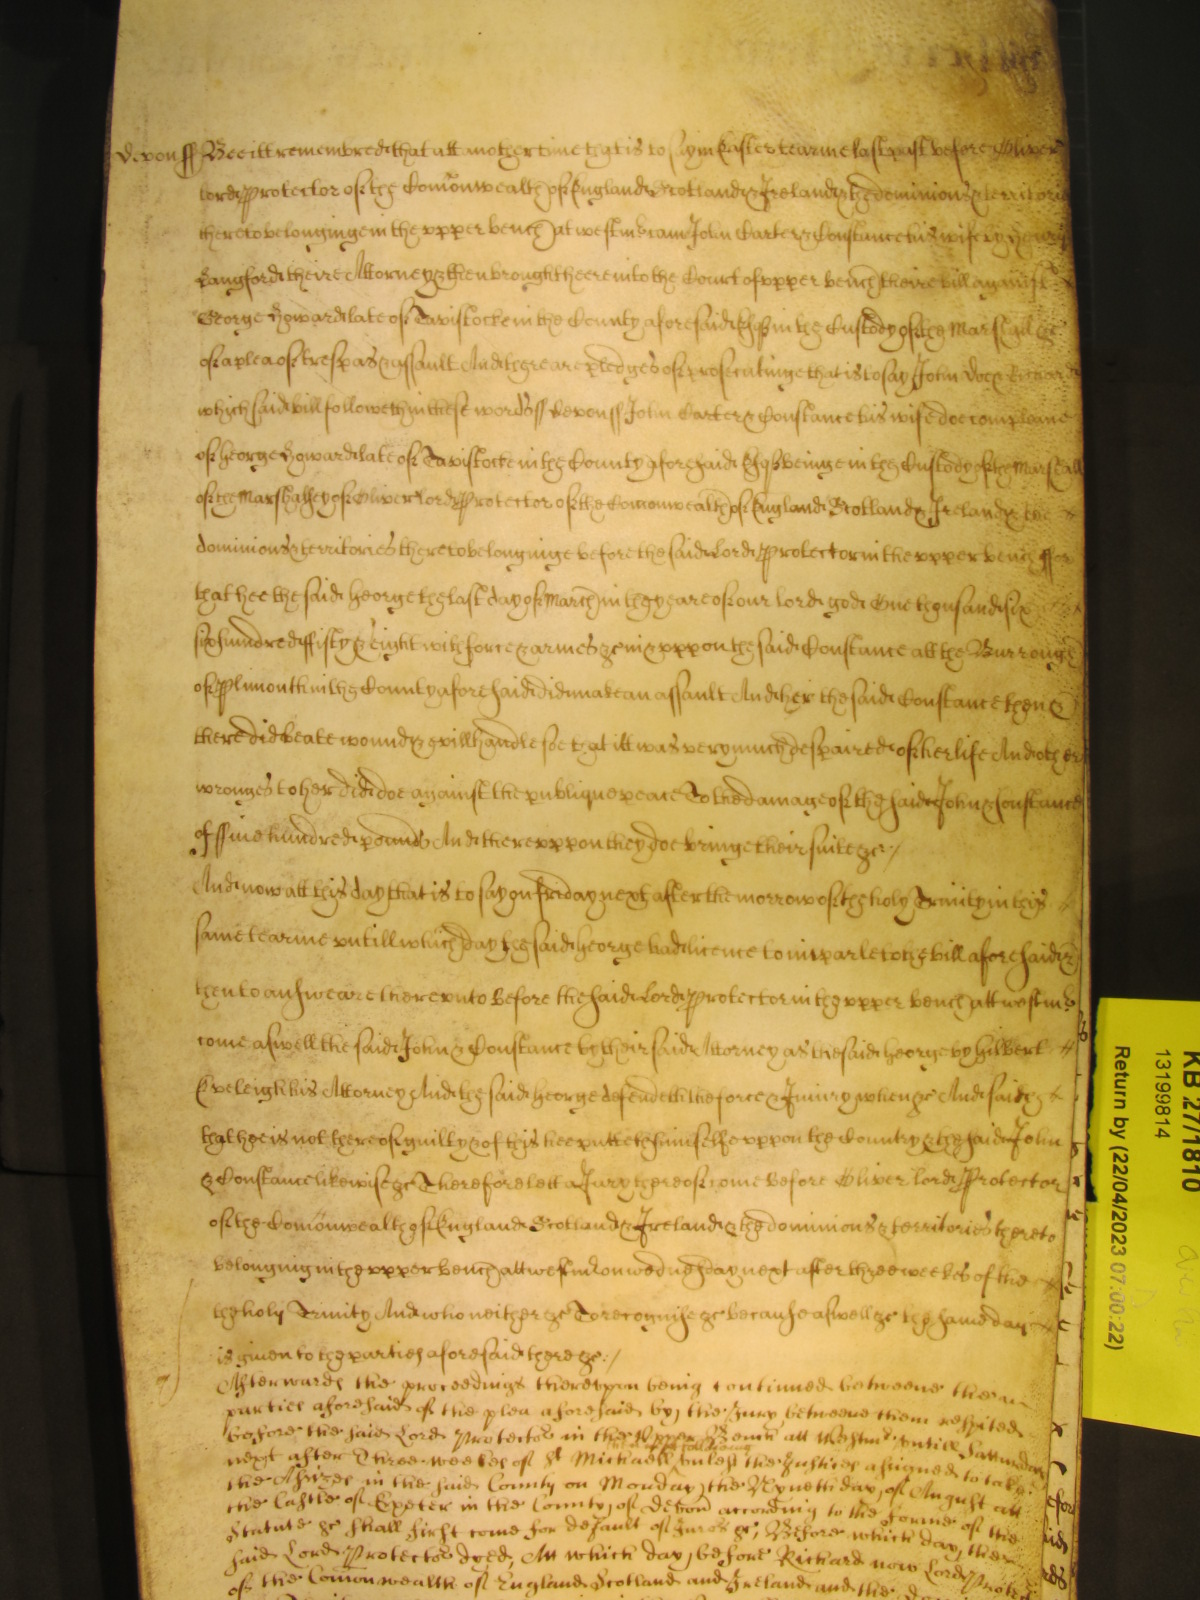 Devon ss Bee itt remembred that att another time that is to say in Easter tearme last past before Oliver
lord Protector of the Comonwealth of England Scotland & Ireland & the dominions & territories
thereto belonginge in the upper bench at westm̄ came John Carter & Constance his wife by Henry
Langford theire Attorney & then brought heere into the Court of upper bench theire bill against
George Howard late of Tavistocke in the County aforesaid Esqr in the Custody of the Marshall &c
of a plea of trespas & assault And there are pledges of prosecutinge that is to say John Doe & Richard
which said bill followeth in these words ss Devon ss John Carter & Constance his wife doe complaine
of George Howard late of Tavistocke in the County aforesaid Esqr beinge in the Custody of the Marshall
of the Marshalsey of Oliver lord Protector of the Comonwealth of England Scotland & Ireland & the
dominions & territories thereto belonginge before the said lord Protector in the upper bench ffor
that hee the said George the last day of March in the yeare of our lord god One thousand six
six hundred fifty & eight with force & armes &c in & uppon the said Constance att the Burrough
of Plimouth in the County aforesaid did make an assault And her the said Constance then &
there did beate wound & evill handle soe that itt was very much despaired of her life And other
wronges to her did doe against the publique peace To the damage of the said John & Constance
of ffive hundred pounds And thereuppon they doe bringe their suite &c
And now att this day that is to say on friday next after the morrow of the holy Trinity in this
same tearme untill which day the said George had licence to imparle to the bill aforesaid &
then to answeare thereunto Before the said lord Protector in the upper bench att westm̄
come aswell the said John & Constance by their said Attorney as the said George by Gilbert
Eveleigh his Attorney And the said George defendeth the force & Iniury when &c And said
that he is not thereof guilty & of this hee putteth himselfe uppon the Country & the said John
& Constance likewise &c Therefore lett a Jury thereof come Before Oliver lord Protector
of the Comonwealth of England Scotland & Ireland & the dominions & territories thereto
belonging in the upper bench att westm̄ on wednesday next after three weekes of the
the holy Trinity And who neither &c To recognise &c because aswell &c the same day
is given to the parties aforesaid there &c
Afterwards the proceedings thereupon being continued betweene them
parties aforesaid of the plea aforesaid by the Jury betweene them respited
before the said Lord Protector in the Upper Bench att Westm̄ untill Satturday
next after Three weekes of St Michaell then next following unles the Justices assigned to take
the Assizes in the said County on Monday the Nynth day of August att
the Castle of Exeter in the County of Devon according to the forme of the
Statute &c shall first come for default of Jurors &c, Before which day the
said Lord Protector dyed, Att which day before Richard now Lord Protector
of the Comonwealth of England Scotland and Ireland and the
KB 27/1810
13199814
Return by (22/04/2023 07:00:22)